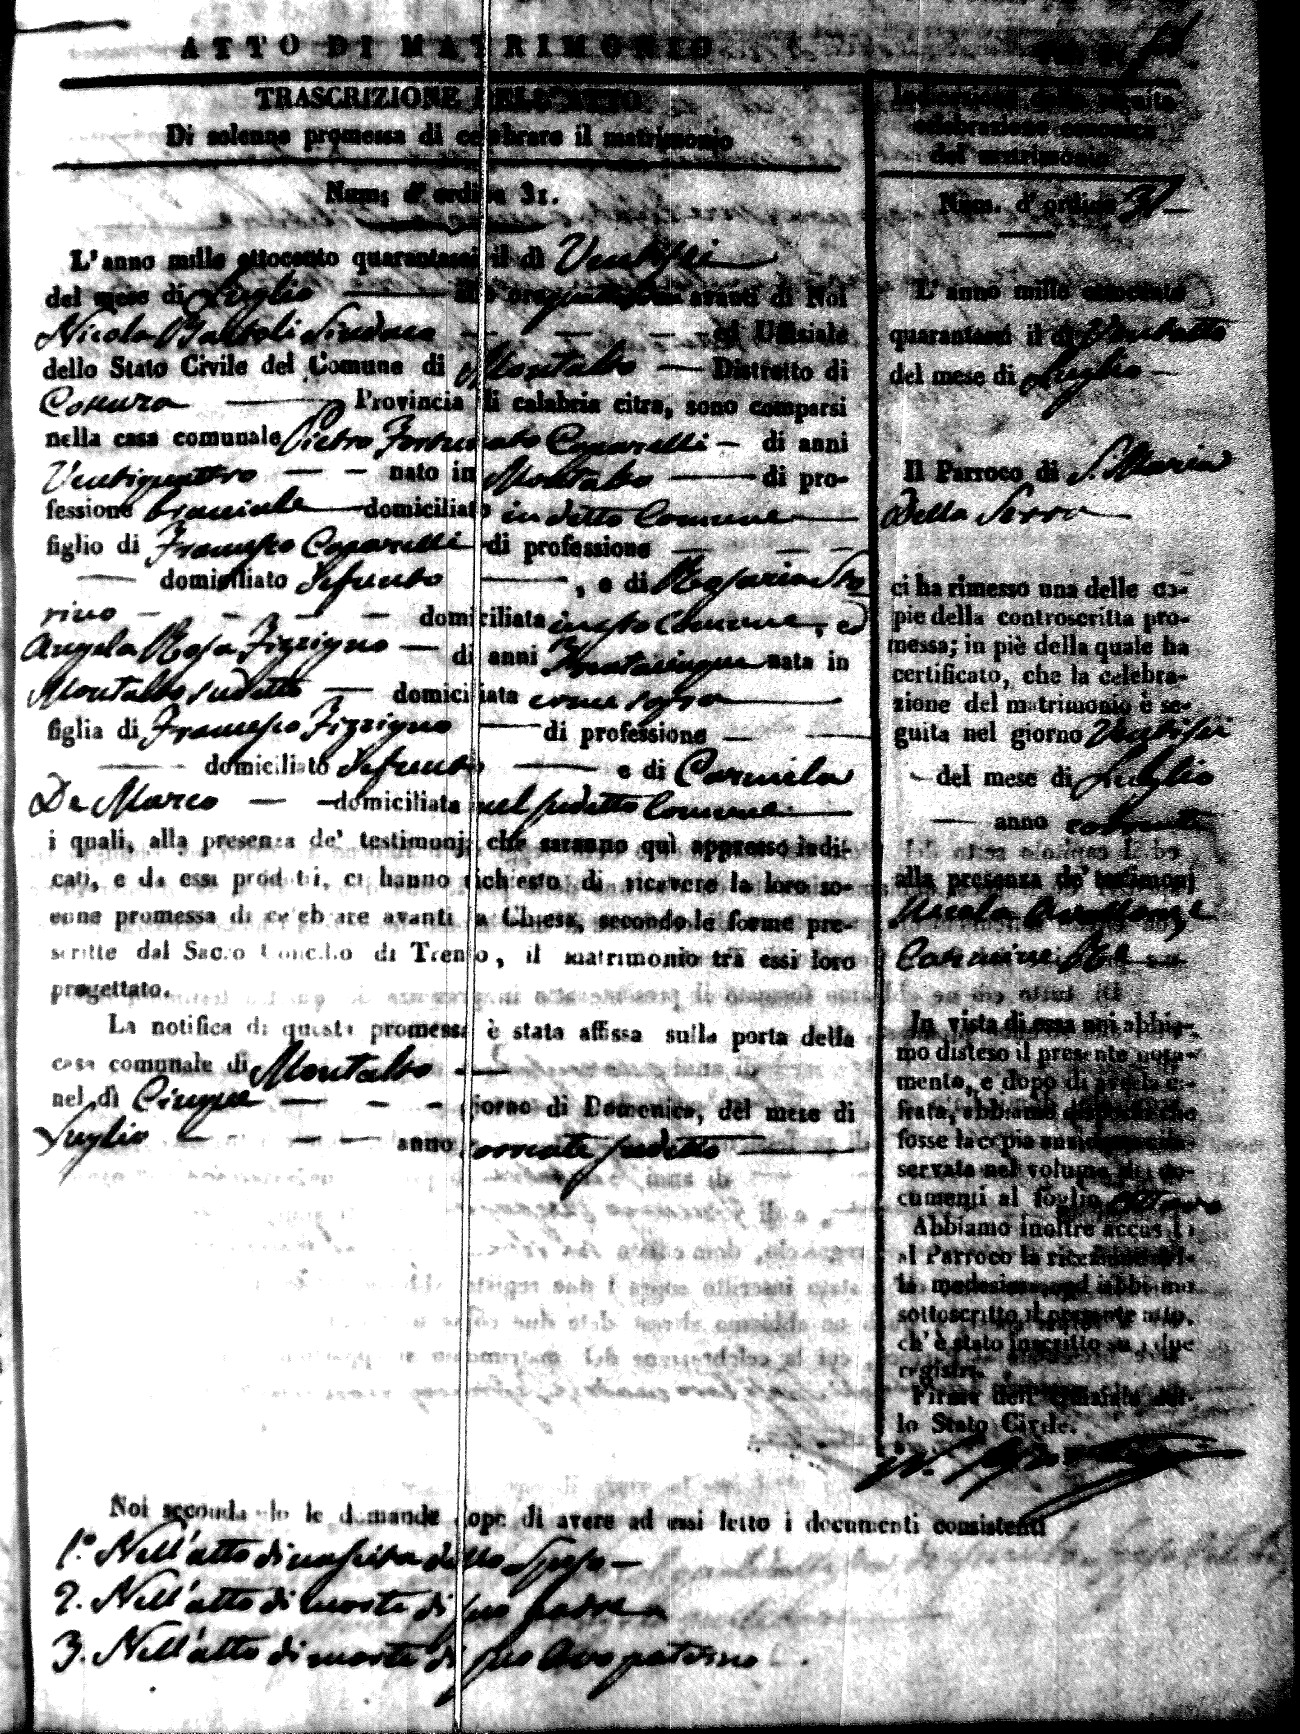 ATTO DI MATRIMONIO
TRASCRIZIONE DELL'ATTO
Di solenne promessa di celebrare il matrimonio
Num. d'ordine 31.
L'anno mille ottocento quarantasei il dì Ventisei
del mese di Luglio alle ore avanti di Noi
Nicola Sindaco ed Uffiziale
dello Stato Civile del Comune di Montalto Distretto di
Cosenza Provincia di calabria citra, sono comparsi
nella casa comunale Pietro Fortunato Caparelli di anni
Ventiquattro nato in Montalto di pro-
fessione bracciale domiciliato in detto Comune
figlio di Francesco Caparelli di professione
domiciliato defunto, e di Rosaria
rino domiciliata in esso Comune, ed
Angela Rosa Fizzigno di anni Trentacinque nata in
Montalto sudetto domiciliata come sopra
figlia di Francesco Fizzigno di professione
domiciliato defunto e di Carmela
De Marco domiciliata nel sudetto Comune
i quali, alla presenza de' testimonj che saranno quì appresso indi-
cati, e da essi prodotti, ci hanno richiesto di ricevere la loro so-
enne promessa di celebrare avanti la Chiesa, secondo le forme pre-
scritte dal Sacro Concilio di Trento, il matrimonio tra essi loro
progettato.
La notifica di questa promessa è stata affissa sulla porta della
casa comunale di Montalto
nel dì Cinque giorno di Domenica, del mese di
Luglio anno corrente sudetto
Noi secondando le domande dopo di avere ad essi letto i documenti consistenti
1.° Nell'atto di nascita dello Sposo
2. Nell'atto di morte di suo padre
3. Nell'atto di morte di suo Avo paterno
Indicazione della seguita
celebrazione canonica
del matrimonio
Num. d'ordine 31
L'anno mille ottocento
quarantasei il dì Ventotto
del mese di Luglio
Il Parroco di S. Maria
Della Serra
ci ha rimesso una delle co-
pie della controscritta pro-
messa; in piè della quale ha
certificato, che la celebra-
zione del matrimonio è se-
guita nel giorno Ventisei
del mese di Luglio
anno corrente
alla presenza de' testimonj
Nicola
Carmine
In vista di essa noi abbia-
mo disteso il presente nota-
mento, e dopo di averla ci-
frata, abbiamo disposto che
fosse la copia anzidetta con-
servata nel volume dei do-
cumenti al foglio ottavo
Abbiamo inoltre accusato
al Parroco la ricezione del-
la medesima, ed abbiamo
sottoscritto il presente atto,
ch'è stato inscritto su i due
registri.
Firma dell'Uffiziale del-
lo Stato Civile.